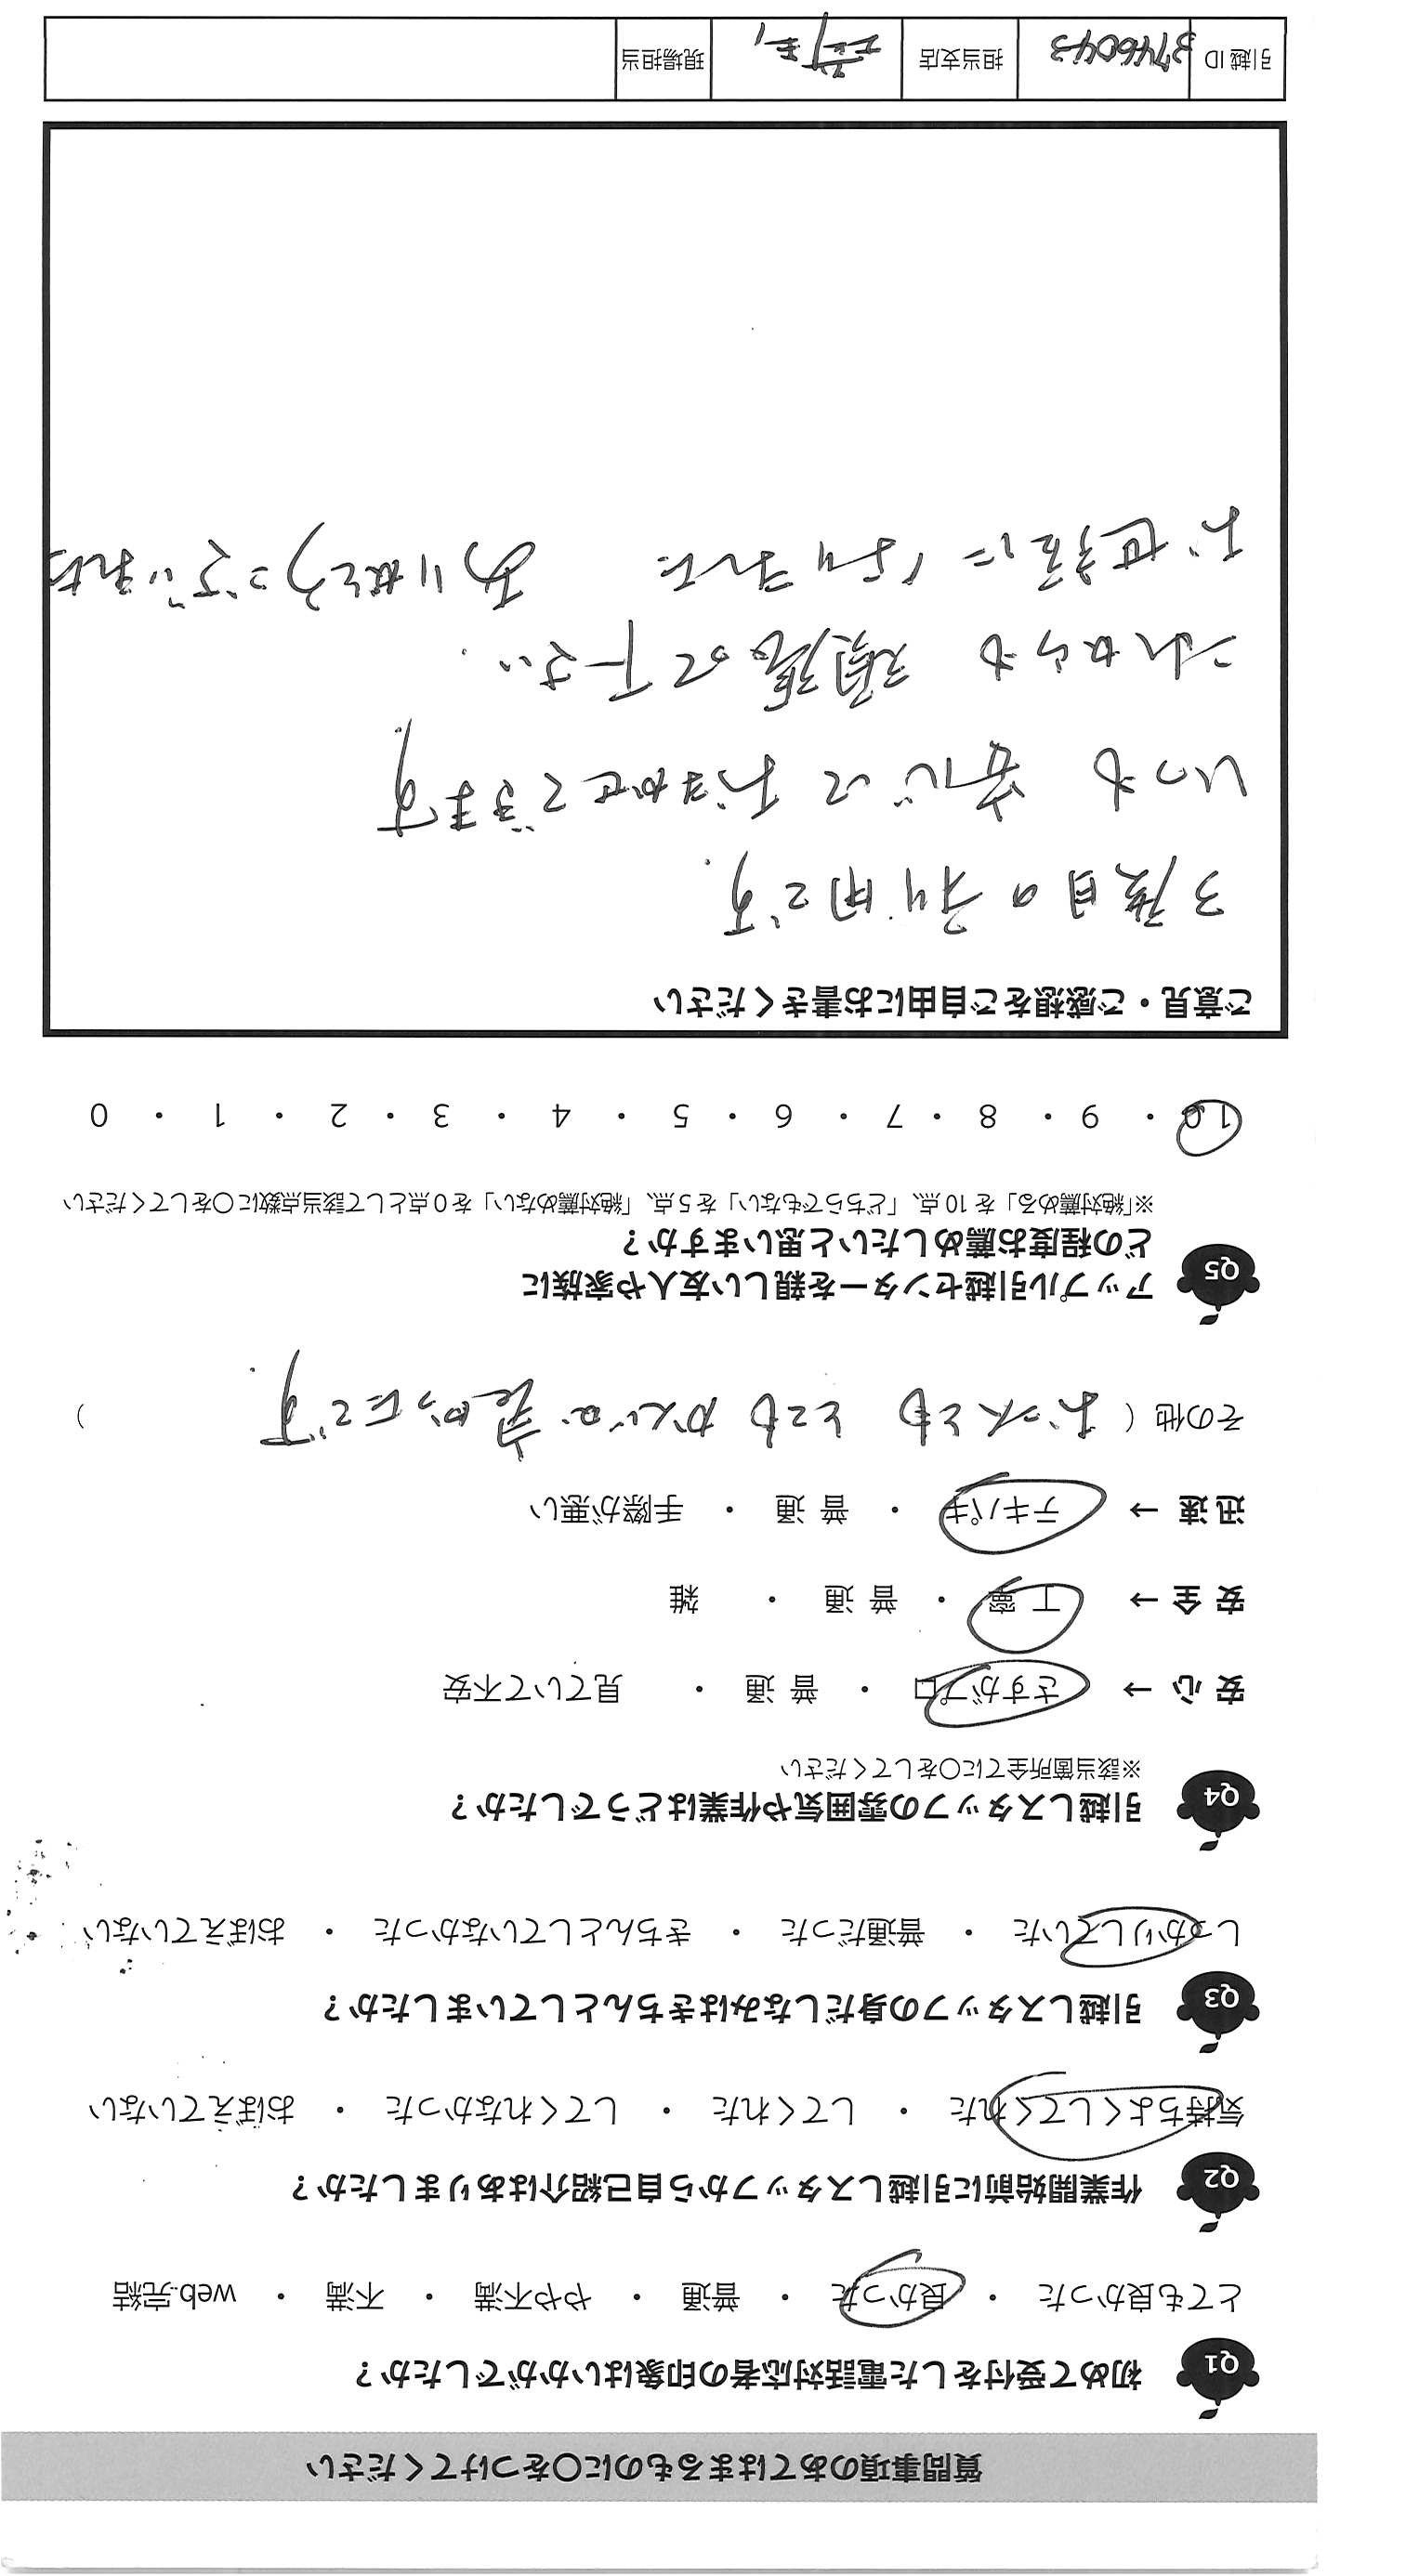 質問事項のあてはまるものに○をつけてください
Q1 初めて受付をした電話対応者の印象はいかがでしたか？
とても良かった ・ 良かった ・ 普通 ・ やや不満 ・ 不満 ・ web完結
Q2 作業開始前に引越しスタッフから自己紹介はありましたか？
気持ちよくしてくれた ・ してくれた ・ してくれなかった ・ おぼえていない
Q3 引越しスタッフの身だしなみはきちんとしていましたか？
しっかりしていた ・ 普通だった ・ きちんとしていなかった ・ おぼえていない
Q4 引越しスタッフの雰囲気や作業はどうでしたか？
※該当箇所全てに○をしてください
安心 → さすがプロ ・ 普通 ・ 見ていて不安
安全 → 丁寧 ・ 普通 ・ 雑
迅速 → テキパキ ・ 普通 ・ 手際が悪い
その他（ お二人とも とても かんじが 良かったです。 ）
Q5 アップル引越センターを親しい友人や家族に
どの程度お薦めしたいと思いますか？
※「絶対薦める」を10点、「どちらでもない」を5点、「絶対薦めない」を0点として該当点数に○をしてください
10 ・ 9 ・ 8 ・ 7 ・ 6 ・ 5 ・ 4 ・ 3 ・ 2 ・ 1 ・ 0
ご意見・ご感想をご自由にお書きください
3度目の利用です。
いつも 安心して おまかせできます。
これからも 頑張って下さい。
お世話になりました ありがとうございました
引越ID 3746043 担当支店 埼玉1 現場担当